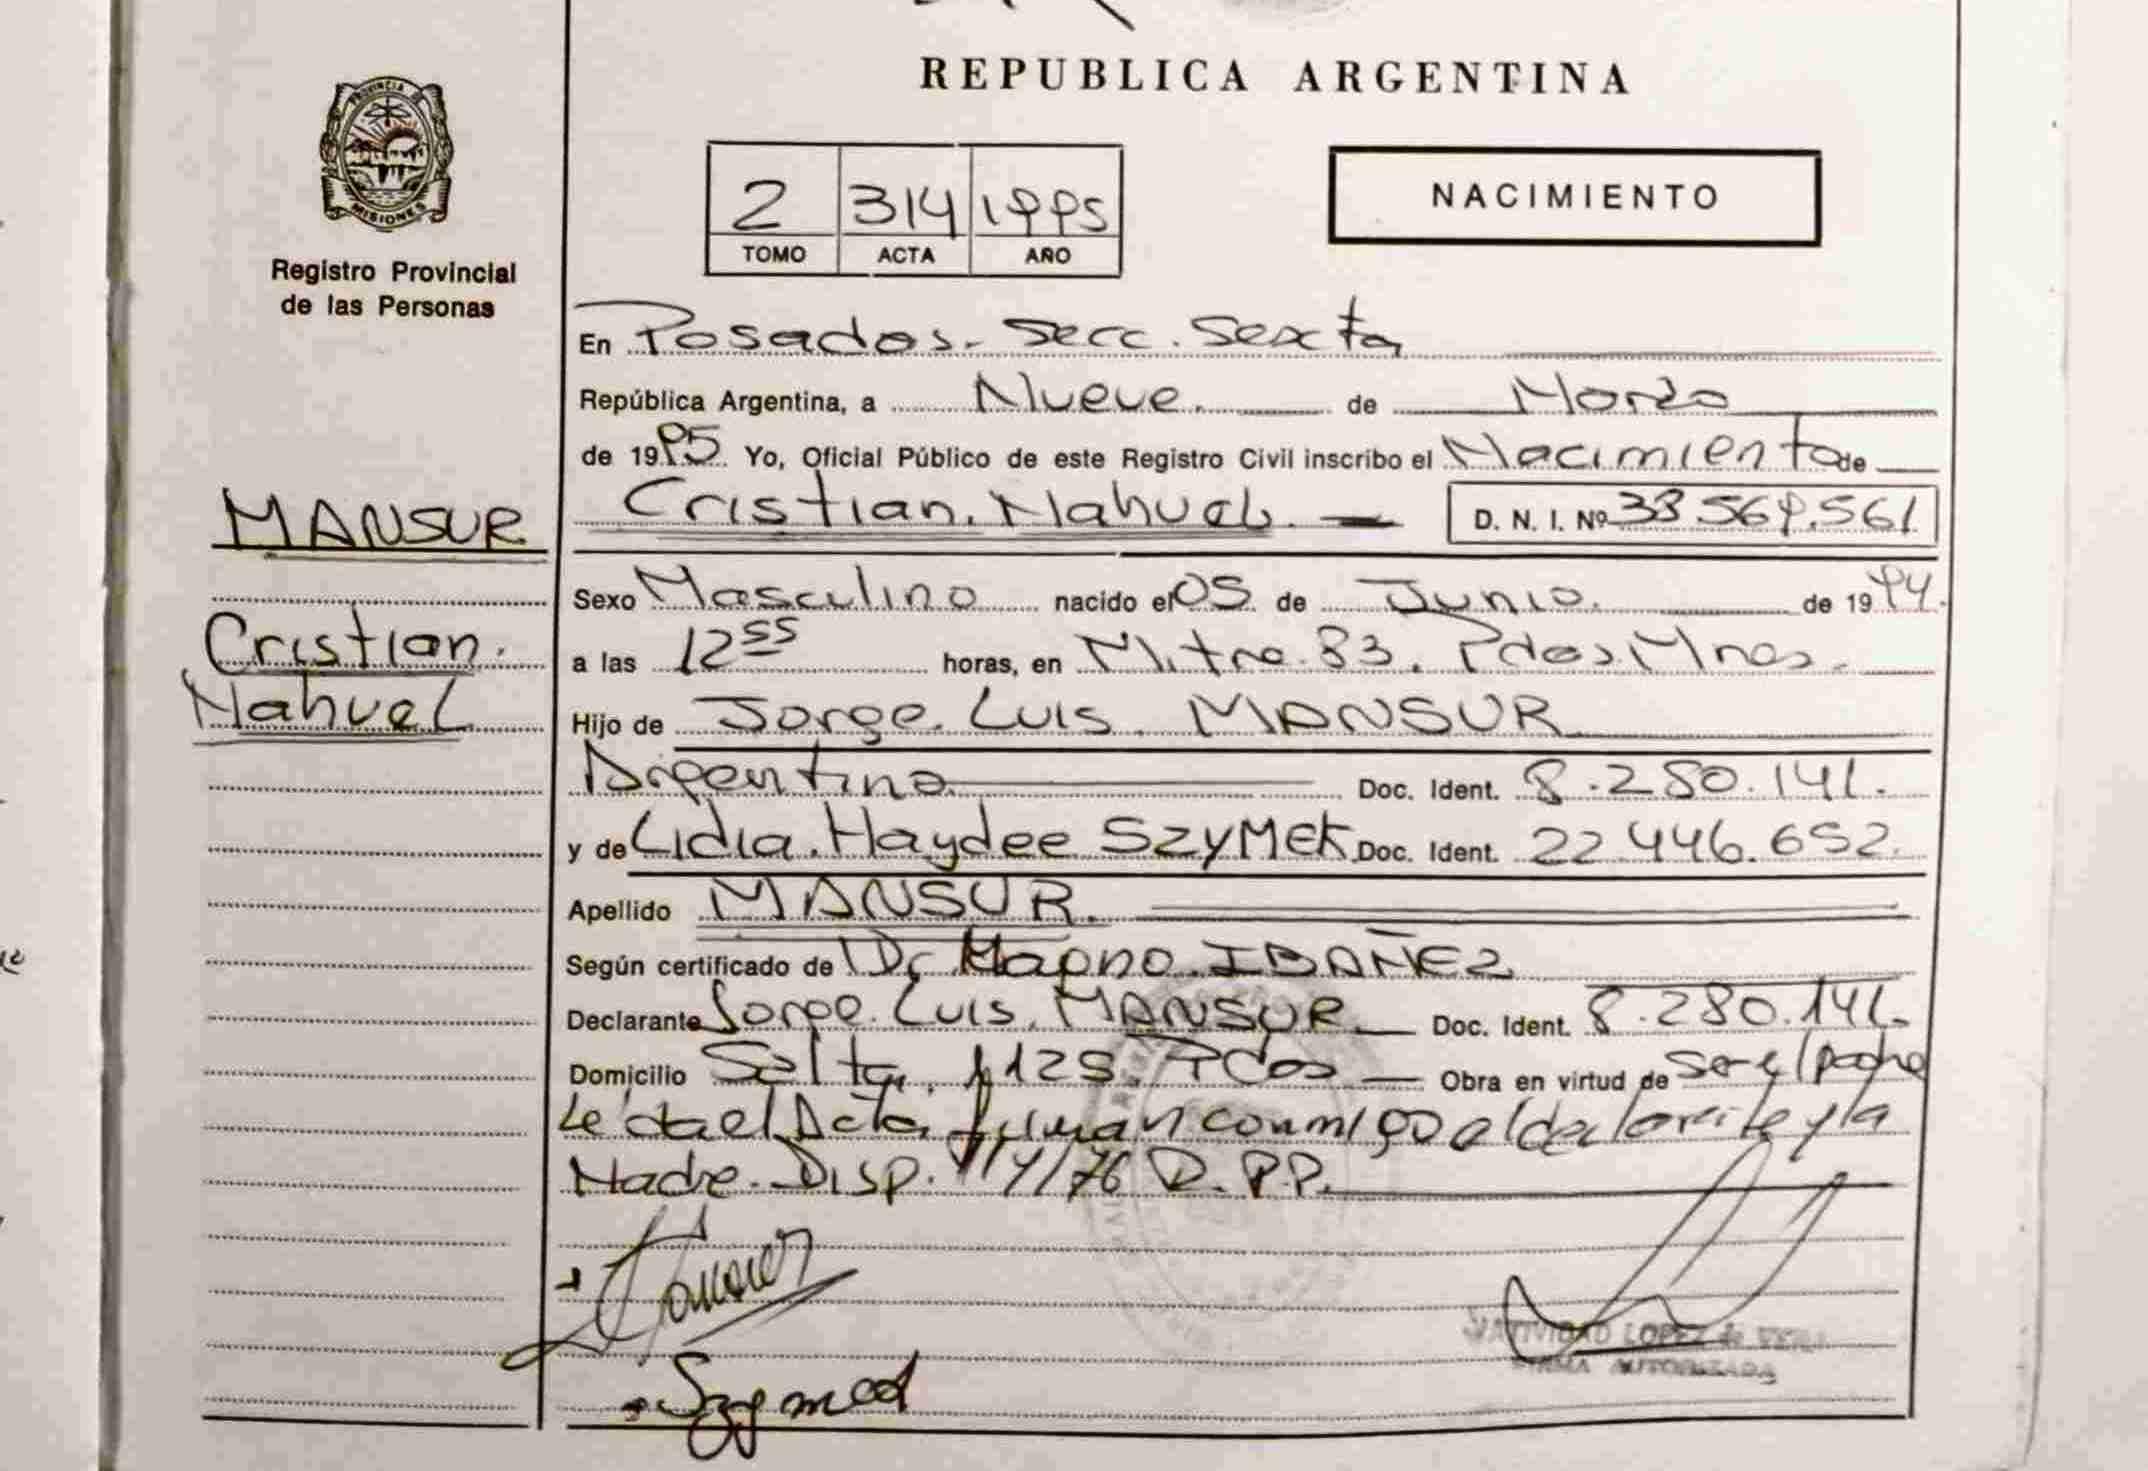 REPUBLICA ARGENTINA
PROVINCIA DE
MISIONES
Registro Provincial
de las Personas
2 314 1995
TOMO ACTA AÑO
NACIMIENTO
En Posadas. Secc. Sexta
República Argentina, a Nueve de Marzo
de 1995 Yo, Oficial Público de este Registro Civil inscribo el Nacimiento de
MANSUR
Cristian. Nahuel. D. N. I. Nº 38.569.561
Sexo Masculino nacido el 05 de Junio. de 1994.
Cristian.
Nahuel
a las 12 55 horas, en Mitre 83. Pdas Mnes.
Hijo de Jorge. Luis. MANSUR
Argentino Doc. Ident. 8.280.141.
y de Lidia. Haydee SZYMEK Doc. Ident. 22.446.652.
Apellido MANSUR.
Según certificado de Dr. Magno. IBAÑEZ
Declarante Jorge. Luis. MANSUR Doc. Ident. 8.280.141.
Domicilio Salta. 1125. Pdas Obra en virtud de ser el padre
Leída el Acta firman conmigo el declarante y la
Madre. Disp. 1/4/76 D.P.P.
Szymek
NATIVIDAD LOPEZ de
FIRMA AUTORIZADA